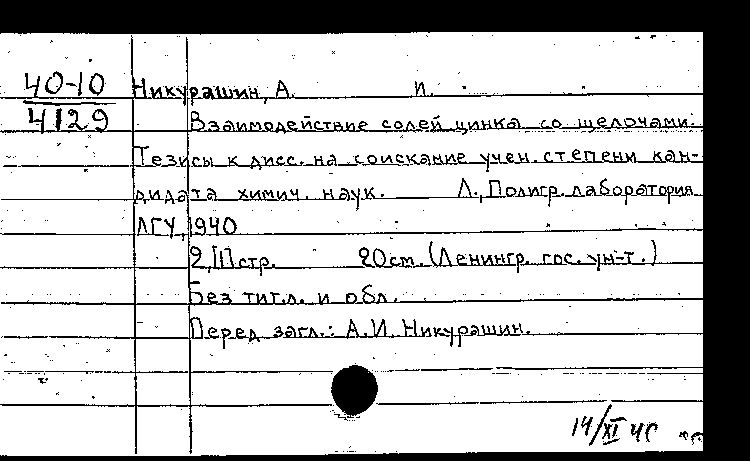 40-10
4129
Никурашин, А. И.
Взаимодействие солей цинка со щелочами.
Тезисы к дисс. на соискание учен. степени кан-
дидата химич. наук. Л., Полигр. лаборатория
ЛГУ, 1940
2, [1] стр. 20 см. (Ленингр. гос. ун-т.)
Без тит. л. и обл.
Перед загл.: А. И. Никурашин.
14/XI 40